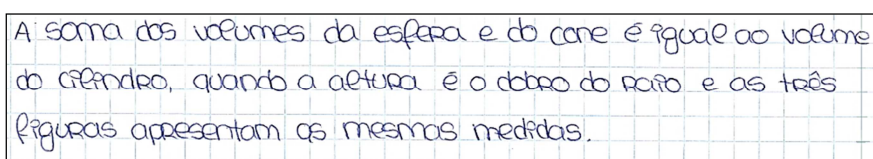 A soma dos volumes da esfera e do cone é igual ao volume
do cilindro, quando a altura é o dobro do raio e as três
figuras apresentam as mesmas medidas.